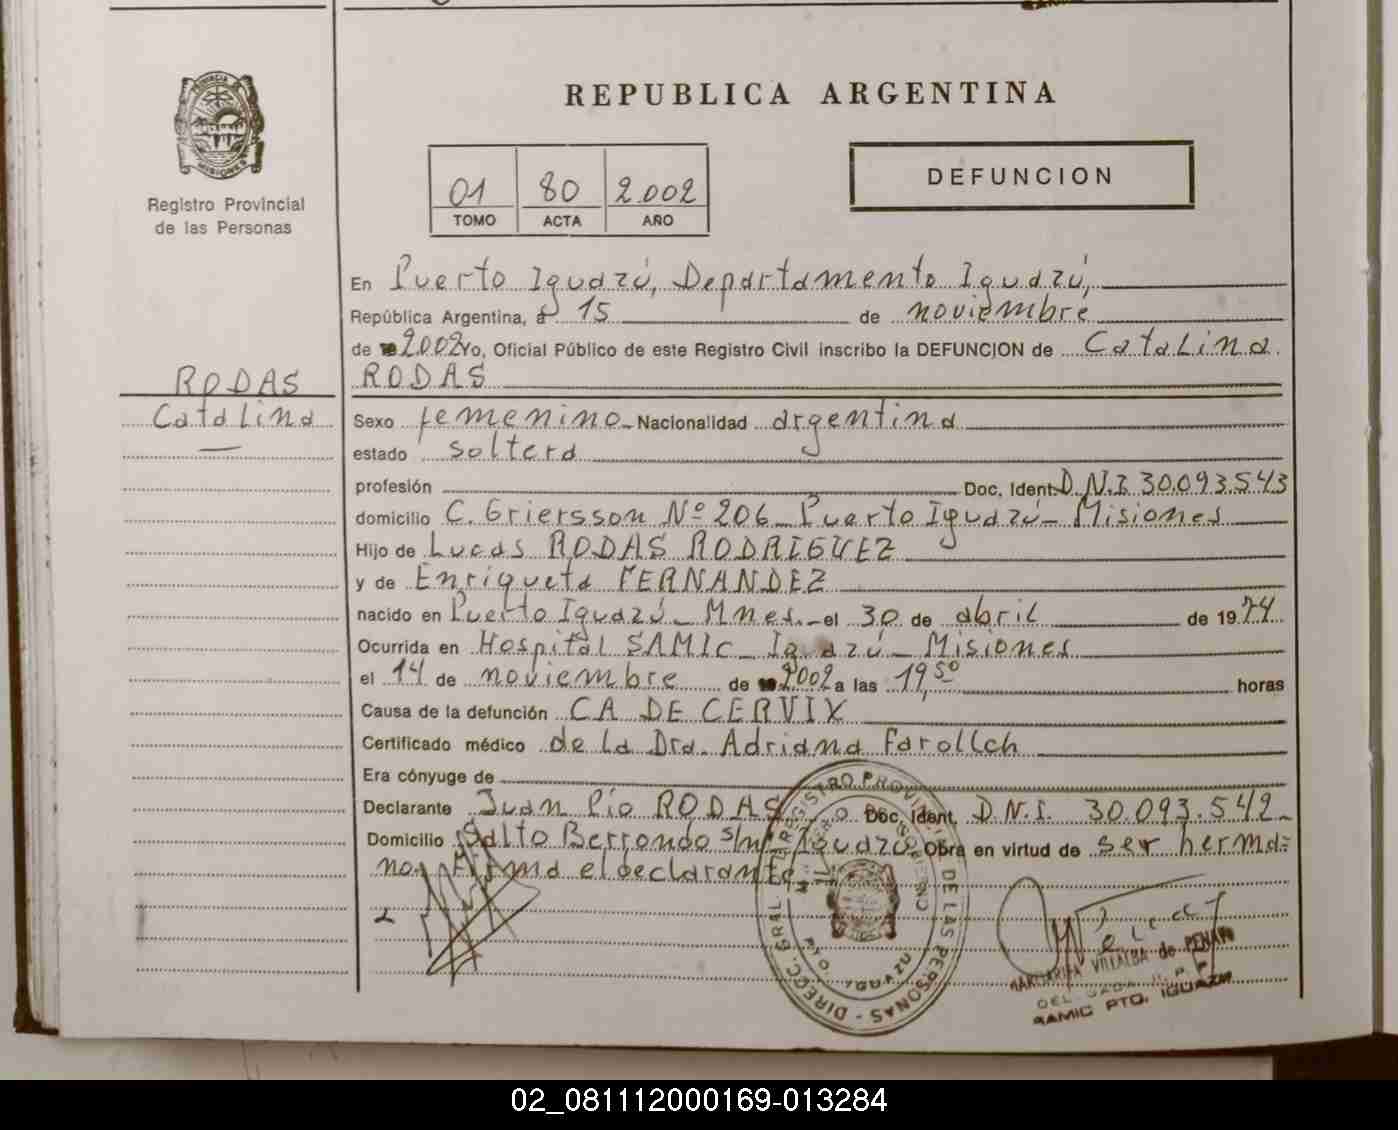 REPUBLICA ARGENTINA
PROVINCIA DE MISIONES
Registro Provincial
de las Personas
01 80 2.002
TOMO ACTA AÑO
DEFUNCION
En Puerto Iguazú, Departamento Iguazú,
República Argentina, a 15 de noviembre
de 2.002 Yo, Oficial Público de este Registro Civil inscribo la DEFUNCION de Catalina
RODAS
RODAS
Catalina
Sexo femenino Nacionalidad argentina
estado soltera
profesión Doc. Ident. D.N.I. 30.093.543
domicilio C. Griersson Nº 206 - Puerto Iguazú - Misiones
Hijo de Lucas RODAS RODRIGUEZ
y de Enriqueta FERNANDEZ
nacido en Puerto Iguazú - Mnes. - el 30 de abril de 1974
Ocurrida en Hospital SAMIc - Iguazú - Misiones
el 14 de noviembre de 2002 a las 19,50 horas
Causa de la defunción CA DE CERVIX
Certificado médico de la Dra. Adriana Farollch
Era cónyuge de
Declarante Juan Pío RODAS Doc. Ident. D.N.I. 30.093.542-
Domicilio Salto Berrondo s/nº Iguazú Obra en virtud de ser herma=
no. Firma el declarante
DIRECC. GRAL. REGISTRO PROVINCIAL DE LAS PERSONAS
PTO. IGUAZU
MARGARITA VILLALBA de
DELEGADA R. P. P.
SAMIC PTO. IGUAZU
02_081112000169-013284